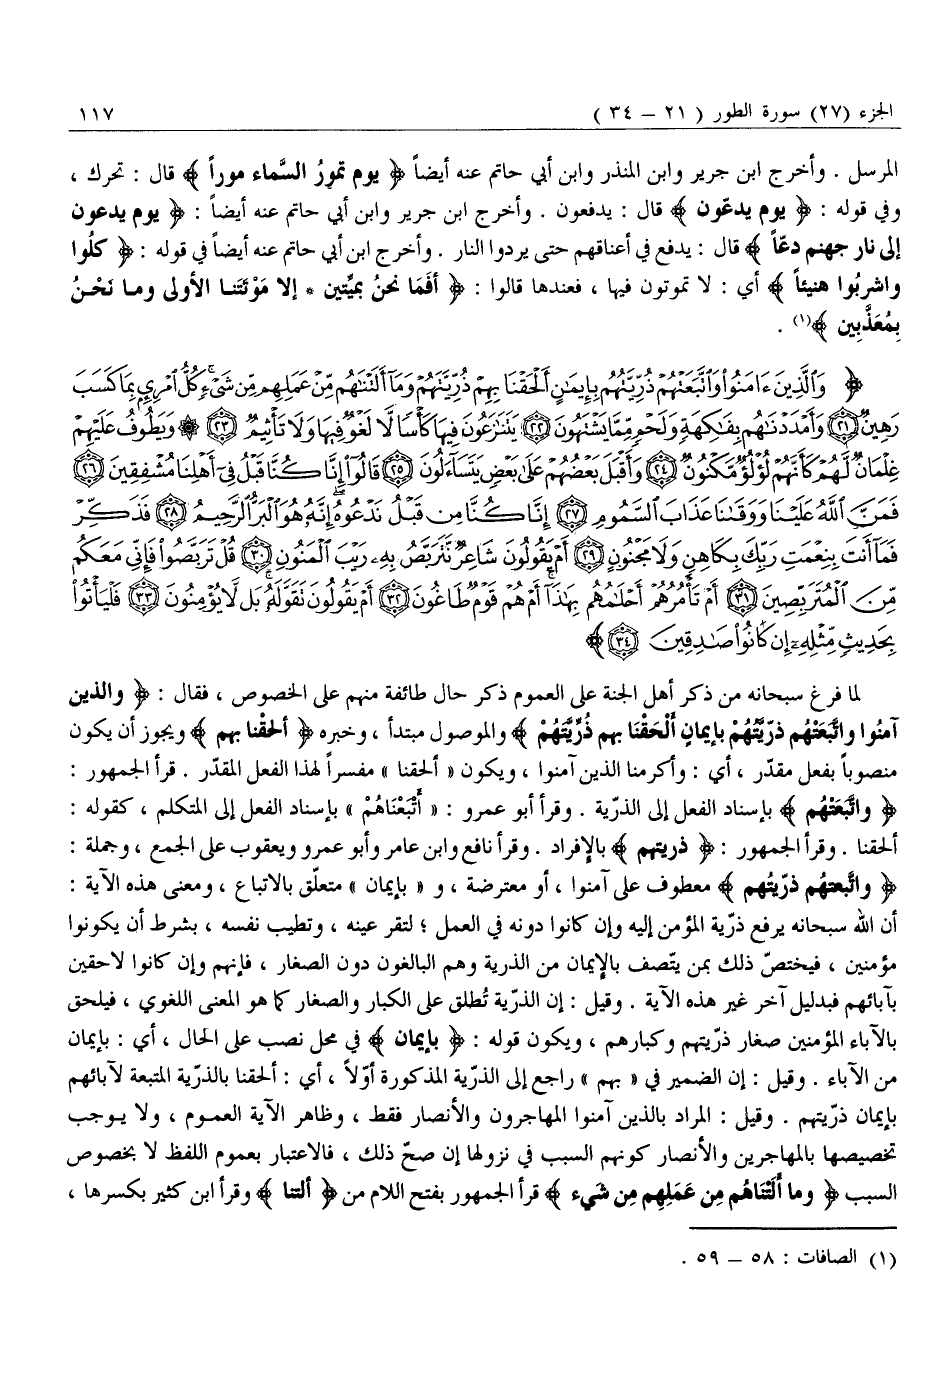 الجزء (٢٧) سورة الطور ( ٢١ – ٣٤ ) ١١٧
المرسل . وأخرج ابن جرير وابن المنذر وابن أبي حاتم عنه أيضاً ﴿ يوم تمورُ السَّماء موراً ﴾ قال : تحرك ،
وفي قوله : ﴿ يوم يدعّون ﴾ قال : يدفعون . وأخرج ابن جرير وابن أبي حاتم عنه أيضاً : ﴿ يوم يدعون
إلى نار جهنم دعّاً ﴾ قال : يدفع في أعناقهم حتى يردوا النار . وأخرج ابن أبي حاتم عنه أيضاً في قوله : ﴿ كلُوا
واشربُوا هنيئاً ﴾ أي : لا تموتون فيها ، فعندها قالوا : ﴿ أفَمَا نحنُ بميِّتين * إلا مَوْتَتَنا الأولى وما نَحْنُ
بِمُعَذَّبِين ﴾(١) .
﴿ وَٱلَّذِينَ ءَامَنُواْ وَٱتَّبَعَتْهُمْ ذُرِّيَّتُهُم بِإِيمَٰنٍ أَلْحَقْنَا بِهِمْ ذُرِّيَّتَهُمْ وَمَآ أَلَتْنَٰهُم مِّنْ عَمَلِهِم مِّن شَىْءٍ كُلُّ ٱمْرِىِٕۭ بِمَا كَسَبَ
رَهِينٌ ﴿٢١﴾ وَأَمْدَدْنَٰهُم بِفَٰكِهَةٍ وَلَحْمٍ مِّمَّا يَشْتَهُونَ ﴿٢٢﴾ يَتَنَٰزَعُونَ فِيهَا كَأْسًا لَّا لَغْوٌ فِيهَا وَلَا تَأْثِيمٌ ﴿٢٣﴾ ۞ وَيَطُوفُ عَلَيْهِمْ
غِلْمَانٌ لَّهُمْ كَأَنَّهُمْ لُؤْلُؤٌ مَّكْنُونٌ ﴿٢٤﴾ وَأَقْبَلَ بَعْضُهُمْ عَلَىٰ بَعْضٍ يَتَسَآءَلُونَ ﴿٢٥﴾ قَالُوٓاْ إِنَّا كُنَّا قَبْلُ فِىٓ أَهْلِنَا مُشْفِقِينَ ﴿٢٦﴾
فَمَنَّ ٱللَّهُ عَلَيْنَا وَوَقَىٰنَا عَذَابَ ٱلسَّمُومِ ﴿٢٧﴾ إِنَّا كُنَّا مِن قَبْلُ نَدْعُوهُ إِنَّهُۥ هُوَ ٱلْبَرُّ ٱلرَّحِيمُ ﴿٢٨﴾ فَذَكِّرْ
فَمَآ أَنتَ بِنِعْمَتِ رَبِّكَ بِكَاهِنٍ وَلَا مَجْنُونٍ ﴿٢٩﴾ أَمْ يَقُولُونَ شَاعِرٌ نَّتَرَبَّصُ بِهِۦ رَيْبَ ٱلْمَنُونِ ﴿٣٠﴾ قُلْ تَرَبَّصُواْ فَإِنِّى مَعَكُم
مِّنَ ٱلْمُتَرَبِّصِينَ ﴿٣١﴾ أَمْ تَأْمُرُهُمْ أَحْلَٰمُهُم بِهَٰذَآ أَمْ هُمْ قَوْمٌ طَاغُونَ ﴿٣٢﴾ أَمْ يَقُولُونَ تَقَوَّلَهُۥ بَل لَّا يُؤْمِنُونَ ﴿٣٣﴾ فَلْيَأْتُواْ
بِحَدِيثٍ مِّثْلِهِۦٓ إِن كَانُواْ صَٰدِقِينَ ﴿٣٤﴾ ﴾
لما فرغ سبحانه من ذكر أهل الجنة على العموم ذكر حال طائفة منهم على الخصوص ، فقال : ﴿ والذين
آمنُوا واتَّبَعَتْهُم ذرّيَّتُهُمْ بإيمانٍ أَلْحَقْنَا بهم ذُرِّيَّتَهُمْ ﴾ والموصول مبتدأ ، وخبره ﴿ ألحقْنا بهم ﴾ ويجوز أن يكون
منصوباً بفعل مقدّر ، أي : وأكرمنا الذين آمنوا ، ويكون « ألحقنا » مفسراً لهذا الفعل المقدّر . قرأ الجمهور :
﴿ واتَّبَعَتْهُم ﴾ بإسناد الفعل إلى الذرية . وقرأ أبو عمرو : « أَتْبَعْنَاهُمْ » بإسناد الفعل إلى المتكلم ، كقوله :
ألحقنا . وقرأ الجمهور : ﴿ ذريتهم ﴾ بالإفراد . وقرأ نافع وابن عامر وأبو عمرو ويعقوب على الجمع ، وجملة :
﴿ واتَّبعتهم ذرّيتُهم ﴾ معطوف على آمنوا ، أو معترضة ، و « بإيمان » متعلّق بالاتباع ، ومعنى هذه الآية :
أن الله سبحانه يرفع ذرّية المؤمن إليه وإن كانوا دونه في العمل ؛ لتقر عينه ، وتطيب نفسه ، بشرط أن يكونوا
مؤمنين ، فيختصّ ذلك بمن يتّصف بالإيمان من الذرية وهم البالغون دون الصغار ، فإنهم وإن كانوا لاحقين
بآبائهم فبدليل آخر غير هذه الآية . وقيل : إن الذرّية تُطلق على الكبار والصغار كما هو المعنى اللغوي ، فيلحق
بالآباء المؤمنين صغار ذرّيتهم وكبارهم ، ويكون قوله : ﴿ بإيمان ﴾ في محل نصب على الحال ، أي : بإيمان
من الآباء . وقيل : إن الضمير في « بهم » راجع إلى الذرّية المذكورة أوّلاً ، أي : ألحقنا بالذرّية المتبعة لآبائهم
بإيمان ذرّيتهم . وقيل : المراد بالذين آمنوا المهاجرون والأنصار فقط ، وظاهر الآية العموم ، ولا يوجب
تخصيصها بالمهاجرين والأنصار كونهم السبب في نزولها إن صحّ ذلك ، فالاعتبار بعموم اللفظ لا بخصوص
السبب ﴿ وما أَلَتْنَاهُم مِن عَمَلِهِم مِن شَيء ﴾ قرأ الجمهور بفتح اللام من ﴿ ألتنا ﴾ وقرأ ابن كثير بكسرها ،
(١) الصافات : ٥٨ – ٥٩ .